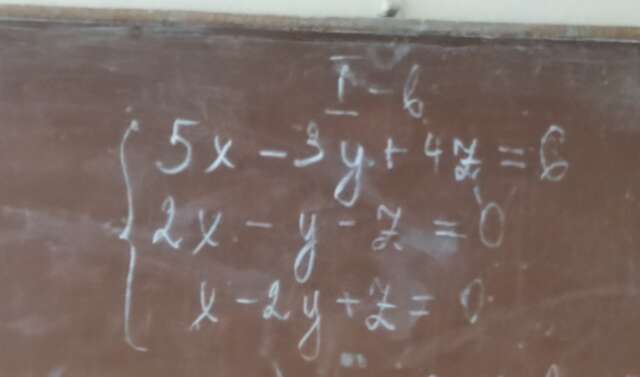 I - в
5x - 3y + 4z = 6
2x - y - z = 0
x - 2y + z = 0